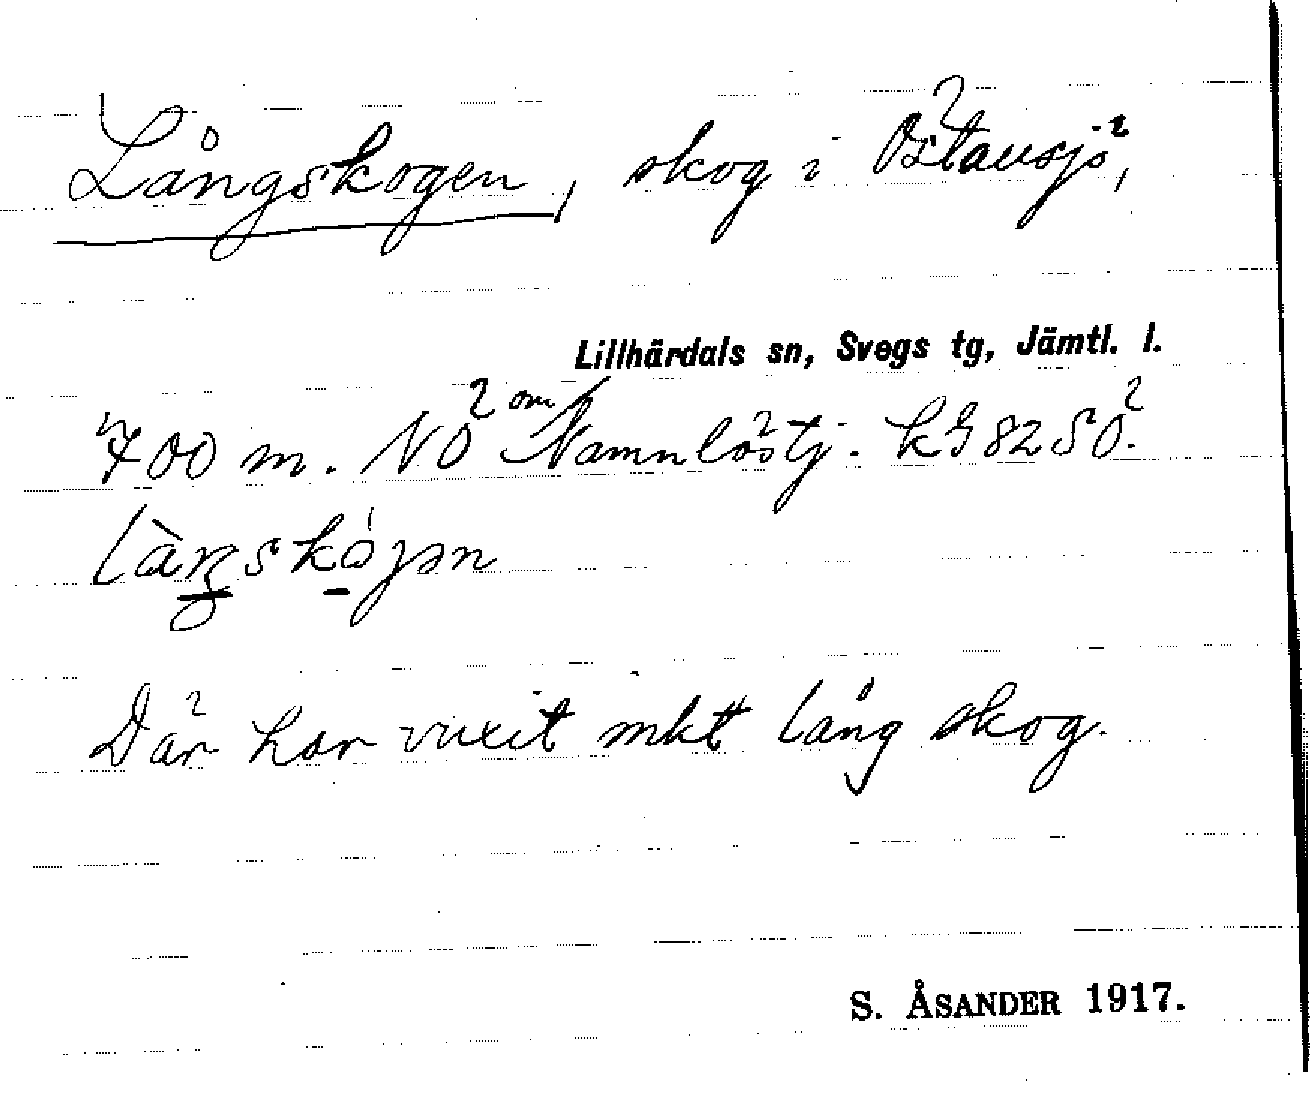 Långskogen, skog i Östansjö,
Lillhärdals sn, Svegs tg, Jämtl. l.
400 m. NÖ om Namnlöstj. kg 82 SÖ.
Där har vuxit mkt lång skog.
S. ÅSANDER 1917.